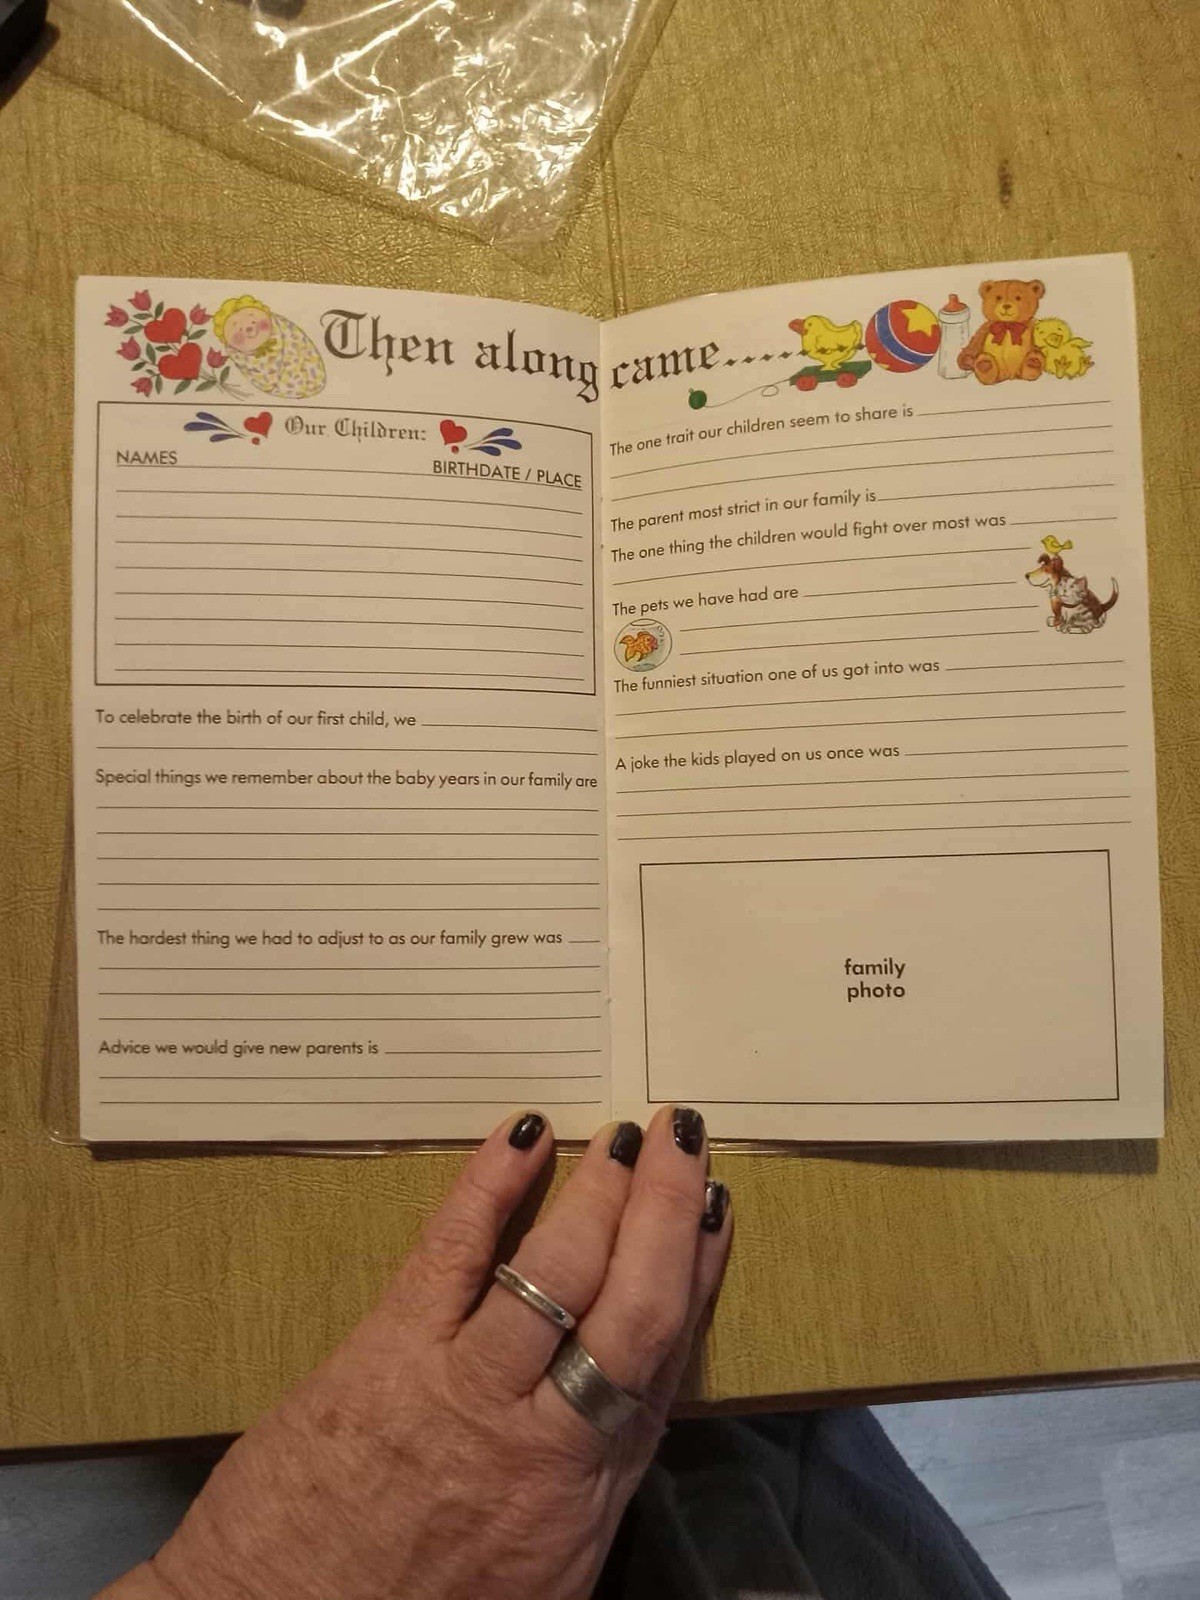 Then along came.........
Our Children:
NAMES
BIRTHDATE / PLACE
To celebrate the birth of our first child, we
Special things we remember about the baby years in our family are
The hardest thing we had to adjust to as our family grew was
Advice we would give new parents is
The one trait our children seem to share is
The parent most strict in our family is
The one thing the children would fight over most was
The pets we have had are
The funniest situation one of us got into was
A joke the kids played on us once was
family
photo